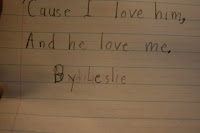 'Cause I love him,
And he love me.
By: Leslie